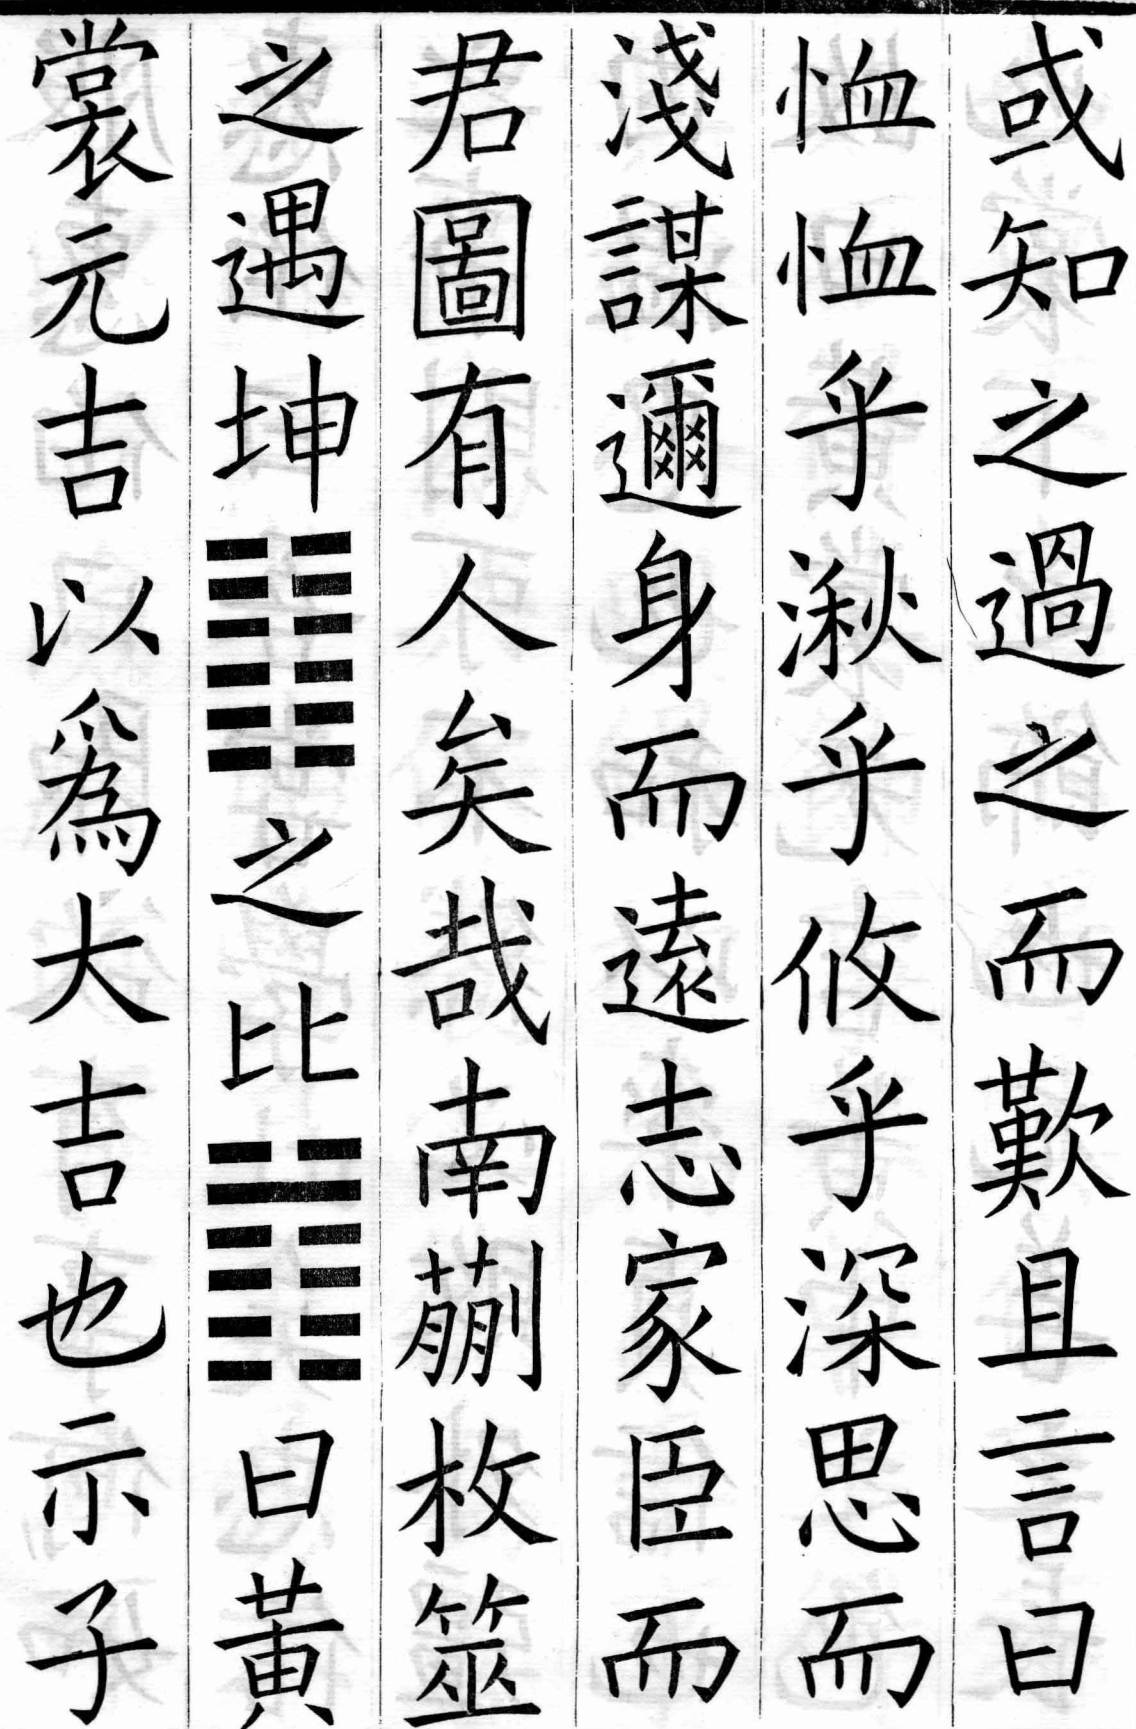 或知之過之而歎且言曰
恤恤乎湫乎攸乎深思而
淺謀邇身而遠志家臣而
君圖有人矣哉南蒯枚筮
之遇坤䷁之比䷇曰黃
裳元吉以爲大吉也示子